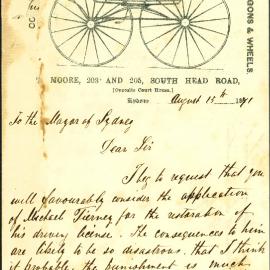 GONS & WHEELS.
MOORE, 203 AND 205, SOUTH HEAD ROAD,
(Opposite Court House.)
Sydney August 15th 1871
To the Mayor of Sydney
Dear Sir
I beg to request that you
will favourably consider the application
of Michael Tierney for the restoration of
his driving license. The consequences to him
are likely to be so disastrous that I think
it probable the punishment is much